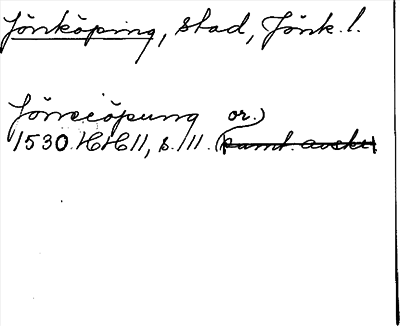 Jönköping, stad, Jönk. l.
Jöneiöpung or.)
1530. HH 11, s. 11. (samt. avskr.